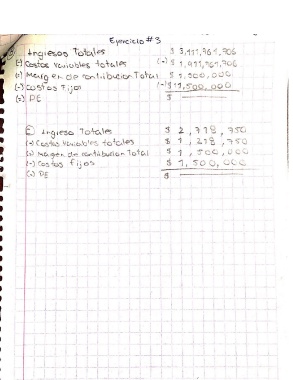 Ejercicio #3
Ingresos Totales $ 3,411,761,706
(-) Costos Variables totales (-) $ 1,911,761,706
(=) Margen de contribucion Total $ 1,500,000
(-) Costos Fijos (-) $ 1,500,000
(=) PE $
Ingreso Totales $ 2,718,750
(-) Costos Variables totales $ 1,218,750
(=) Margen de contribucion Total $ 1,500,000
(-) Costos fijos $ 1,500,000
(=) PE $